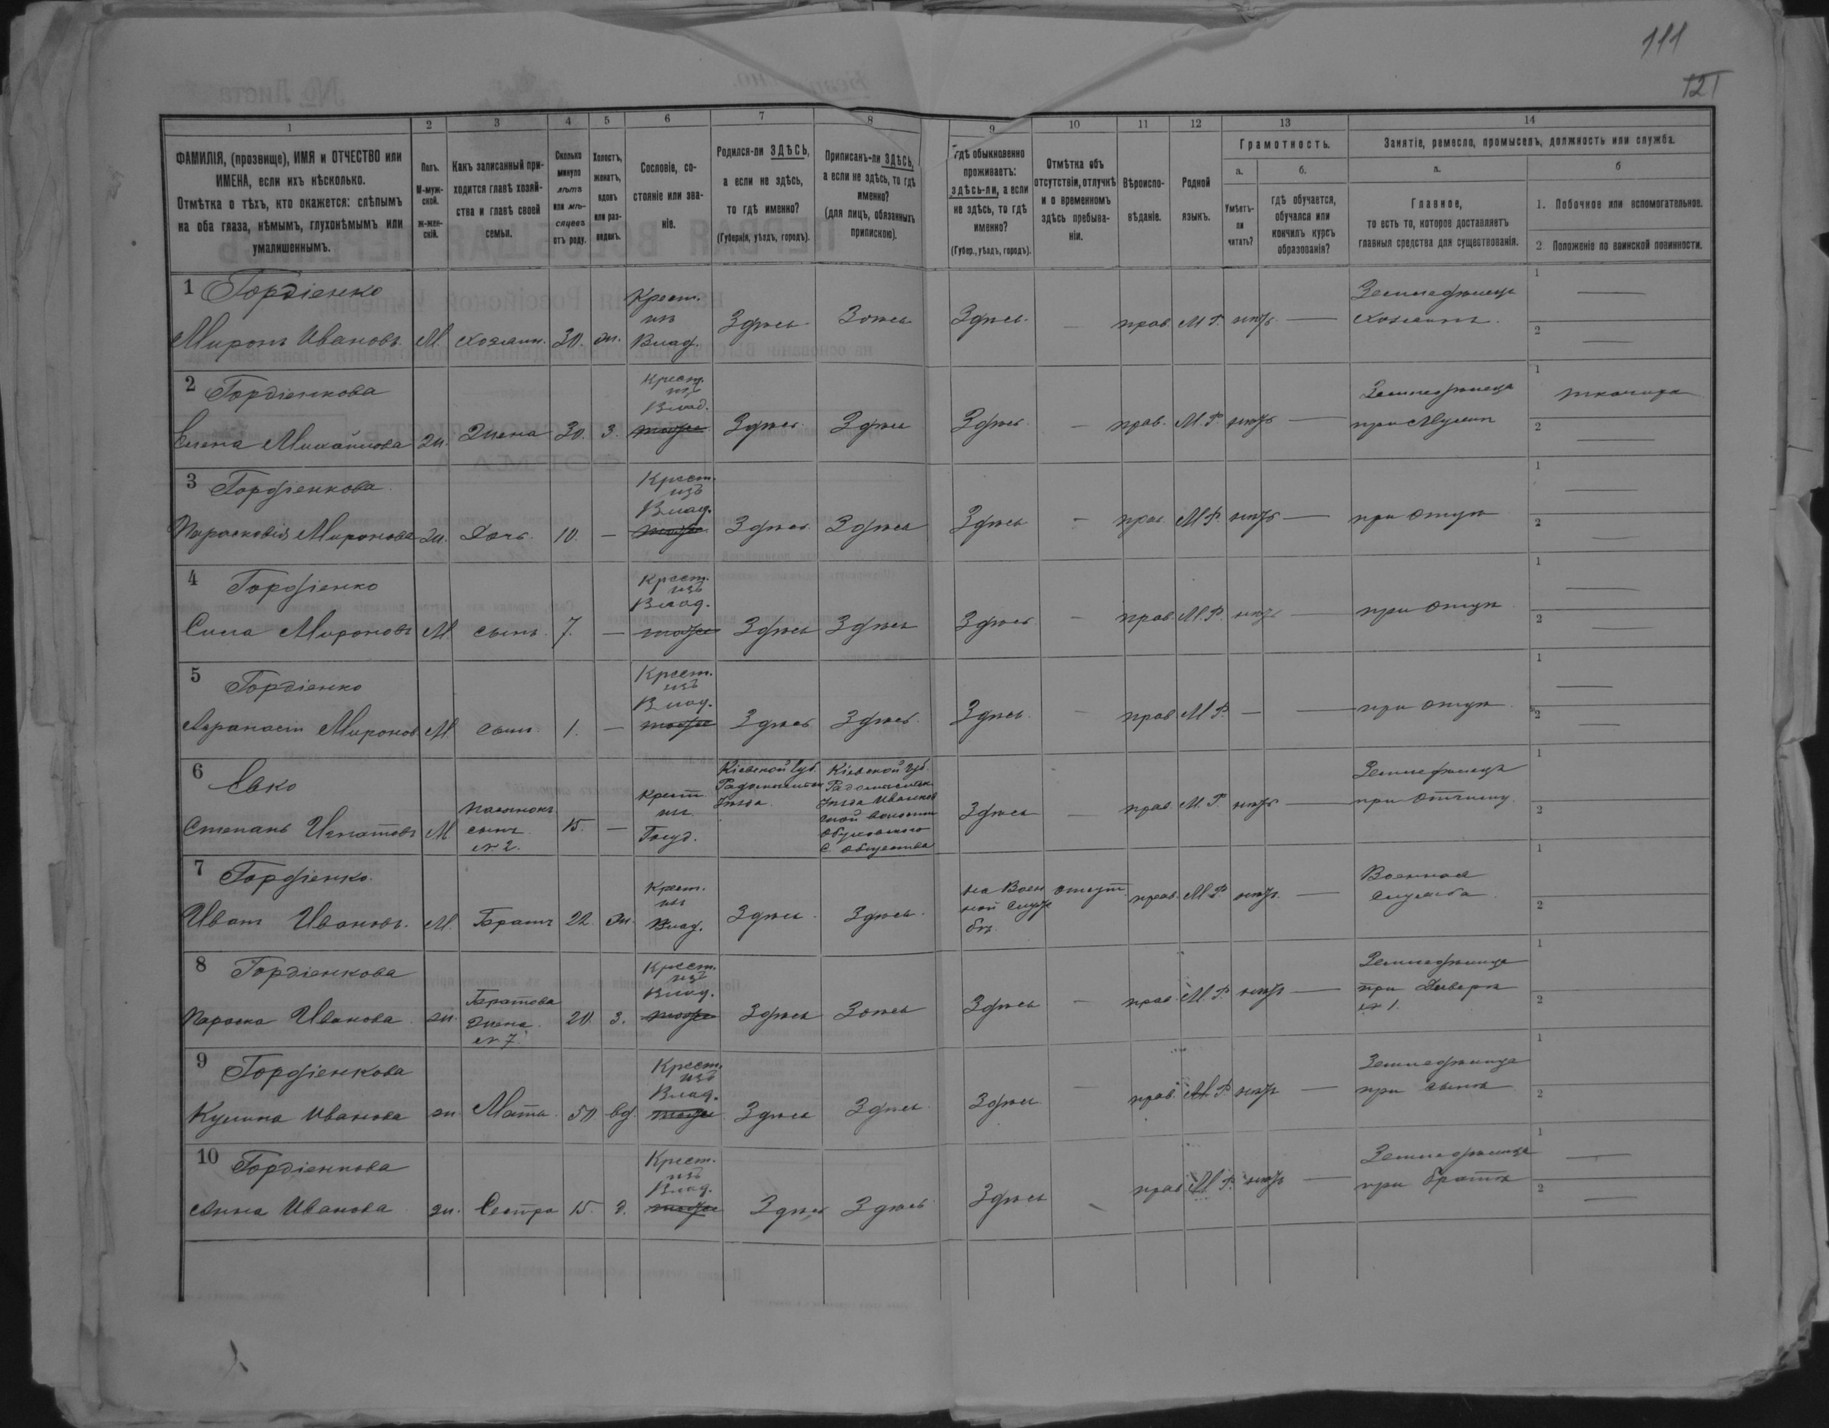 111
121
1 2 3 4 5 6 7 8 9 10 11 12 13 14
ФАМИЛІЯ, (прозвище), ИМЯ и ОТЧЕСТВО или
ИМЕНА, если ихъ нѣсколько.
Отмѣтка о тѣхъ, кто окажется: слѣпымъ
на оба глаза, нѣмымъ, глухонѣмымъ или
умалишеннымъ.
Полъ.
М-муж-
ской.
ж-жен-
скій.
Какъ записанный при-
ходится главѣ хозяй-
ства и главѣ своей
семьи.
Сколько
минуло
лѣтъ
или мѣ-
сяцевъ
отъ роду.
Холостъ,
женатъ,
вдовъ
или раз-
веденъ.
Сословіе, со-
стояніе или зва-
ніе.
Родился-ли ЗДѢСЬ,
а если не здѣсь,
то гдѣ именно?
(Губернія, уѣздъ, городъ).
Приписанъ-ли ЗДѢСЬ,
а если не здѣсь, то гдѣ
именно?
(для лицъ, обязанныхъ
припискою).
Гдѣ обыкновенно
проживаетъ:
здѣсь-ли, а если
не здѣсь, то гдѣ
именно?
(Губер., уѣздъ, городъ).
Отмѣтка объ
отсутствіи, отлучкѣ
и о временномъ
здѣсь пребыва-
ніи.
Вѣроиспо-
вѣданіе.
Родной
языкъ.
Грамотность.
а.
Умѣетъ-
ли
читать?
б.
гдѣ обучается,
обучался или
кончилъ курсъ
образованія?
Занятіе, ремесло, промыселъ, должность или служба.
а.
Главное,
то есть то, которое доставляетъ
главныя средства для существованія.
б
1. Побочное или вспомогательное.
2 Положеніе по воинской повинности.
1 Гордіенко
Миронъ Ивановъ. М. хозяин. 30. ж. Крест. изъ Влад. Здѣсь Здѣсь Здѣсь — прав М.Р. нѣтъ — Земледѣлецъ хозяинъ 1 — 2 —
2 Гордіенкова
Елена Михайлова ж. Жена 30. з. Крест. изъ Влад. тоже Здѣсь Здѣсь Здѣсь — прав. М.Р. нѣтъ — Земледѣлица при Мужѣ 1 ткачиха 2 —
3 Гордіенкова
Парасковія Миронова ж. Дочь 10. — Крест. изъ Влад. тоже Здѣсь Здѣсь Здѣсь — прав М.Р. нѣтъ — при отцѣ 1 — 2 —
4 Гордіенко
Сила Мироновъ М сынъ 7. — Крест. изъ Влад. тоже Здѣсь Здѣсь Здѣсь — прав. М.Р. нѣтъ — при отцѣ 1 — 2 —
5 Гордіенко
Афанасій Миронов М. сынъ 1. — Крест. изъ Влад. тоже Здѣсь Здѣсь Здѣсь — прав М.Р. — — при отцѣ 1 — 2 —
6 Евко
Степанъ Игнатовъ М сынъ № 2. 15. — Крест изъ Госуд. Кіевской Губ. Радомысльск Уѣзда Кіевской Губ. Радомысльск Уѣзда Здѣсь — прав. М.Р. нѣтъ — Земледѣлецъ при отчиму 1 2
7 Гордіенко
Иванъ Ивановъ. М. Братъ 22. ж. Крест. изъ Влад. Здѣсь Здѣсь на Воен ной служ бѣ отсут прав. М.Р. нѣтъ — Военная служба 1 2
8 Гордіенкова
Параска Иванова ж. Братова Жена № 7. 20 з. Крест. изъ Влад. тоже Здѣсь Здѣсь Здѣсь — прав М.Р. нѣтъ — Земледѣлица при Деверѣ № 1. 1 2
9 Гордіенкова
Кулина Иванова ж. Мать 50 вд. Крест. изъ Влад. тоже Здѣсь Здѣсь Здѣсь — прав. М.Р. нѣтъ — Земледѣлица при сынѣ 1 2
10 Гордіенкова
Анна Иванова ж. Сестра 15. д. Крест. изъ Влад. тоже Здѣсь Здѣсь Здѣсь — прав М.Р. нѣтъ — Земледѣлица при братѣ 1 — 2 —